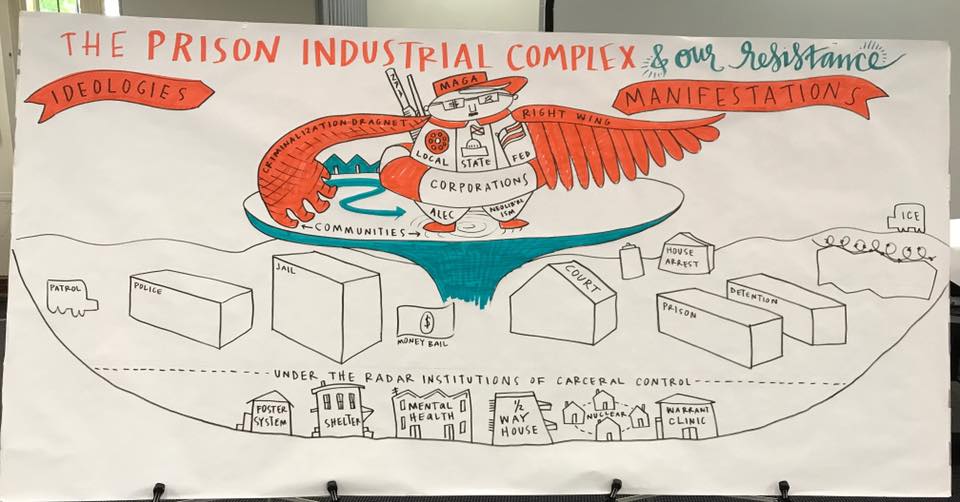 THE PRISON INDUSTRIAL COMPLEX & our resistance
IDEOLOGIES
MANIFESTATIONS
MAGA
CRIMINALIZATION DRAGNET
RIGHT WING
LOCAL
STATE
FED
CORPORATIONS
ALEC
NEOLIBERALISM
←COMMUNITIES→
ICE
HOUSE
ARREST
PATROL
POLICE
JAIL
$
MONEY BAIL
COURT
PRISON
DETENTION
UNDER THE RADAR INSTITUTIONS OF CARCERAL CONTROL
FOSTER
SYSTEM
SHELTER
MENTAL
HEALTH
1/2
WAY
HOUSE
NUCLEAR
WARRANT
CLINIC